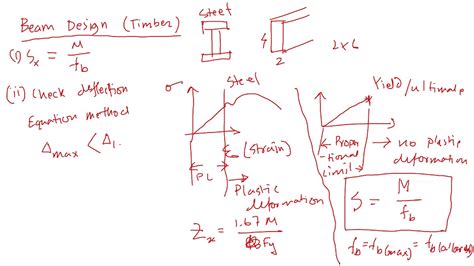 Beam Design (Timber)
(i) Sx = M / fb
(ii) Check deflection
Equation method
Δmax < Δ
Steel
4
2
2x6
σ
Steel
ε (strain)
PL
Plastic
deformation
Zx = 1.67 M / Fy
Yield/ultimate
Propor
-tional
limit
no plastic
deformation
S = M / fb
fb = fb(max) =